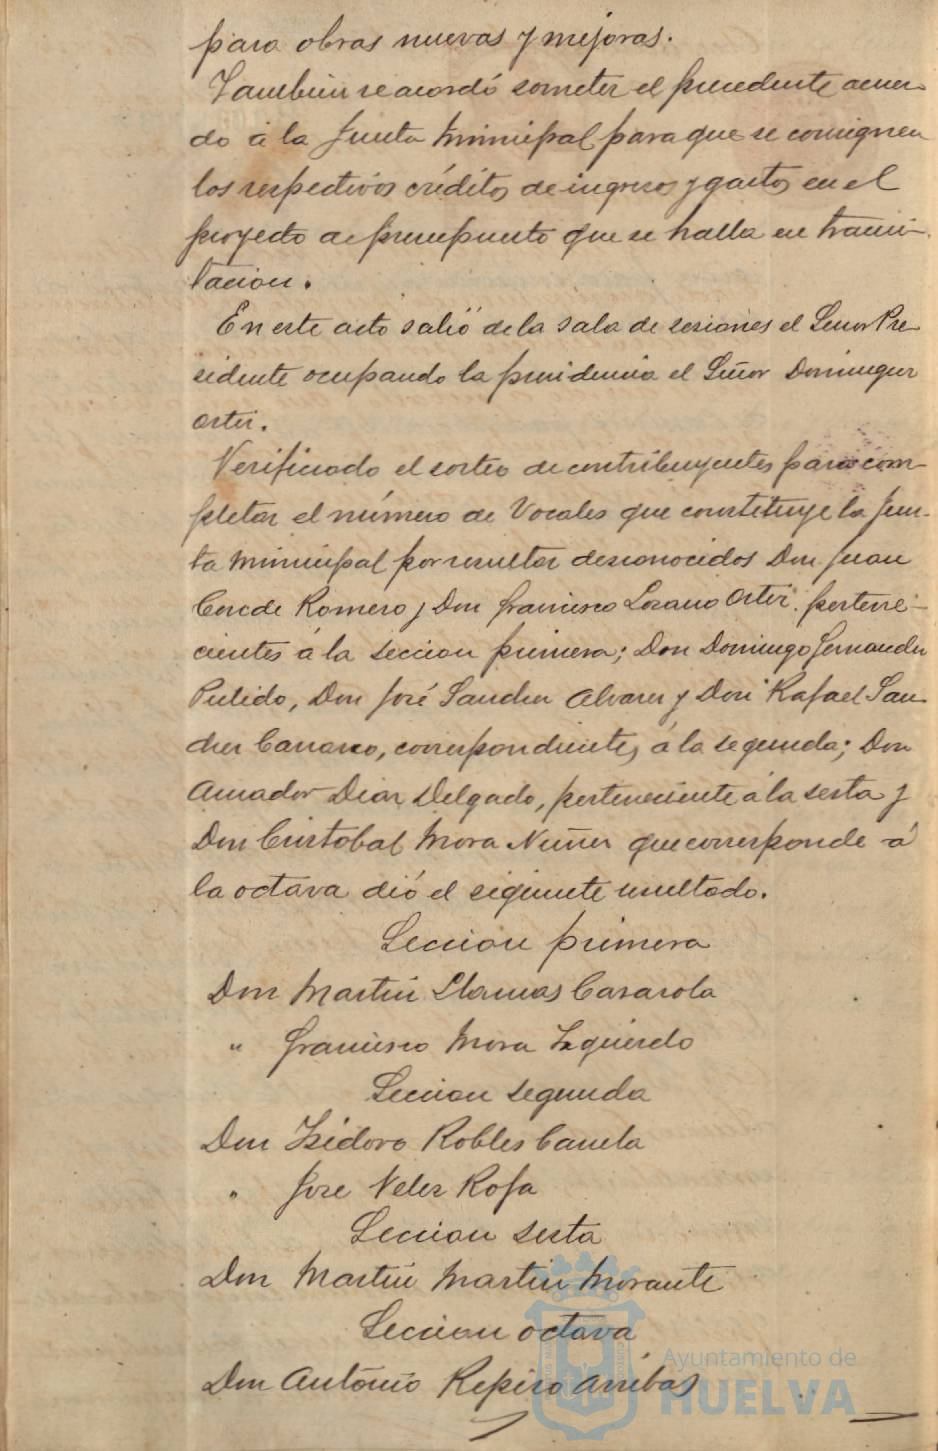 para obras nuevas y mejoras.
Tambien se acordó someter el precedente acuer-
do á la Junta Municipal para que se consignen
los respectivos créditos de ingresos y gastos en el
proyecto de presupuesto que se halla en trami-
tacion.
En este acto salió de la sala de sesiones el Señor Pre-
sidente ocupando la presidencia el Señor Dominguez
Ortiz.
Verificado el sorteo de contribuyentes para com-
pletar el número de Vocales que constituye la Jun-
ta Municipal por resultar desconocidos Don Juan
Conde Romero y Don Francisco Lozano Ortiz, pertene-
cientes á la seccion primera; Don Domingo Fernandez
Pulido, Don José Sanchez Alvarez y Don Rafael San-
chez Carrasco, correspondientes á la segunda; Don
Amador Diaz Delgado, perteneciente á la sesta y
Don Cristobal Mora Nuñez que corresponde á
la octava dió el siguiente resultado.
Seccion primera
Don Martin Llamas Casarola
" Francisco Mora Izquierdo
Seccion segunda
Don Isidoro Robles Canela
" Jose Velez Rofa
Seccion sesta
Don Martin Martin Morante
Seccion octava
Don Antonio Repiso Arribas
Ayuntamiento de
HUELVA